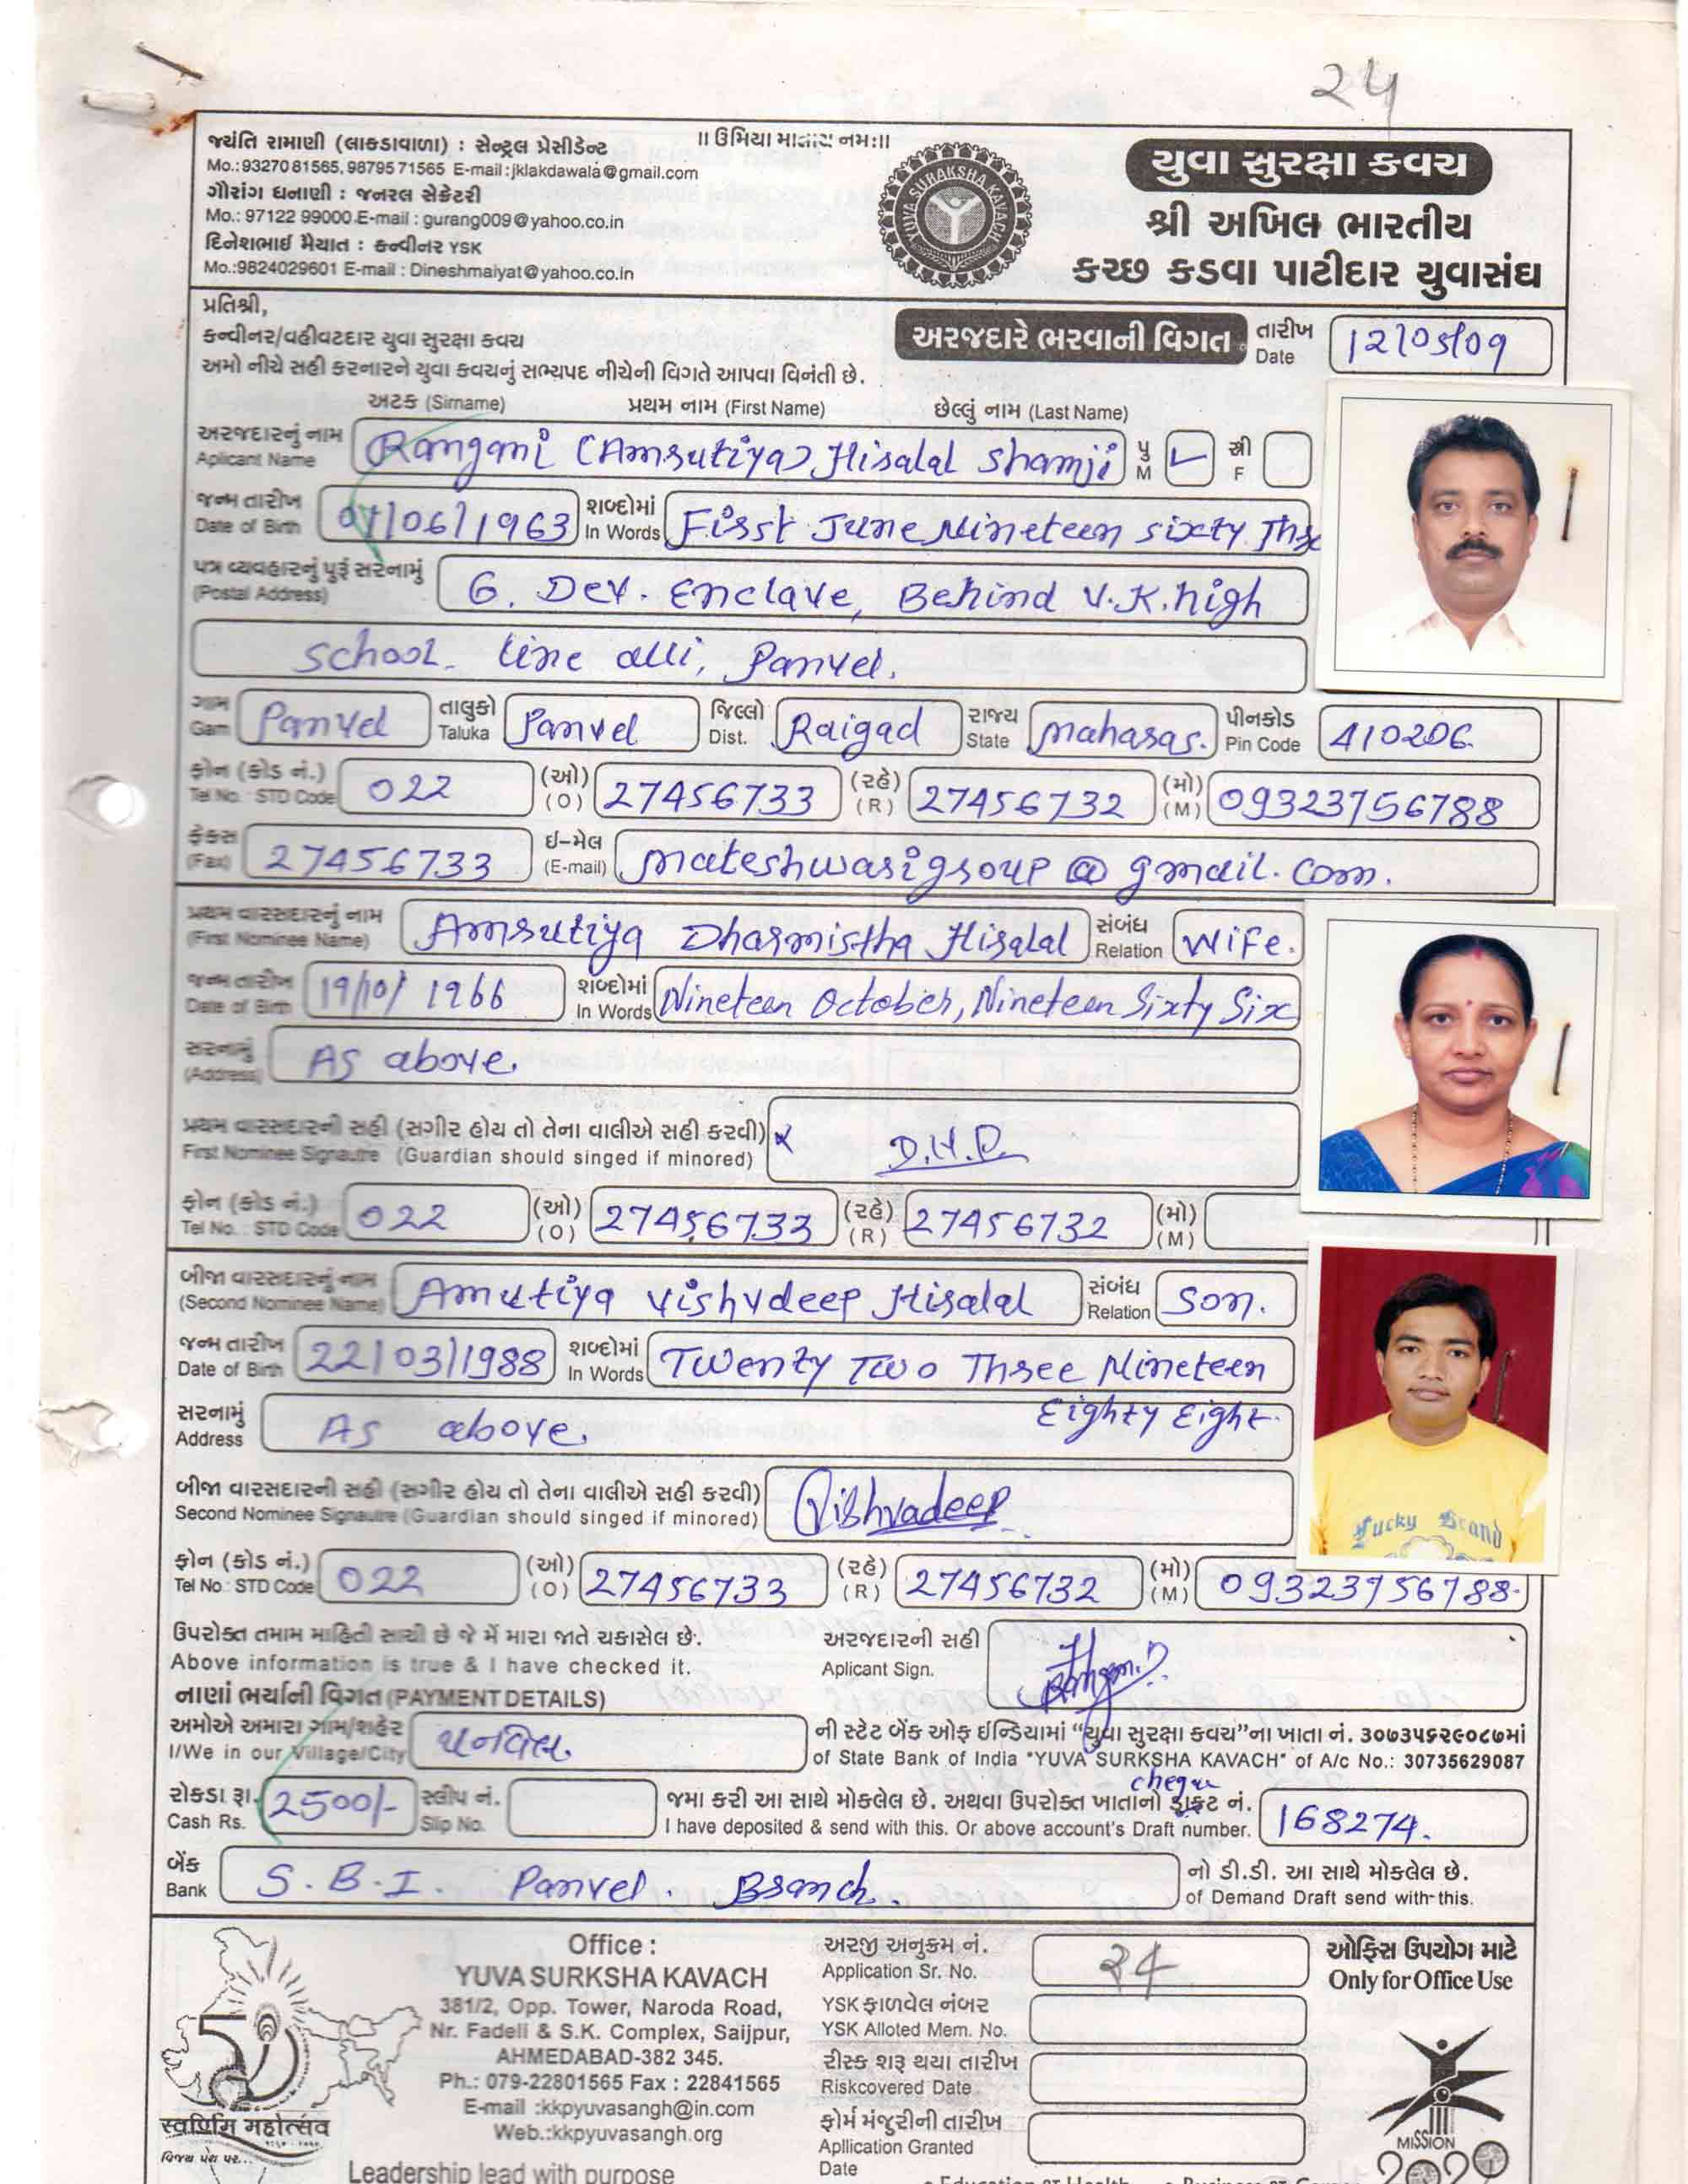 ૨૪
જયંતિ રામાણી (લાકડાવાળા) : સેન્ટ્રલ પ્રેસીડેન્ટ
Mo.:93270 81565, 98795 71565 E-mail :jklakdawala@gmail.com
ગૌરાંગ ધનાણી : જનરલ સેક્રેટરી
Mo.: 97122 99000 E-mail : gurang009@yahoo.co.in
દિનેશભાઈ મૈયાત : કન્વીનર YSK
Mo.:9824029601 E-mail : Dineshmaiyat@yahoo.co.in
॥ ઉમિયા માતાય નમઃ॥
YUVA SURAKSHA KAVACH
યુવા સુરક્ષા કવચ
શ્રી અખિલ ભારતીય
કચ્છ કડવા પાટીદાર યુવાસંઘ
પ્રતિશ્રી,
કન્વીનર/વહીવટદાર યુવા સુરક્ષા કવચ
અમો નીચે સહી કરનારને યુવા કવચનું સભ્યપદ નીચેની વિગતે આપવા વિનંતી છે.
અરજદારે ભરવાની વિગત તારીખ Date 12/05/09
અટક (Sirname) પ્રથમ નામ (First Name) છેલ્લું નામ (Last Name)
અરજદારનું નામ Aplicant Name Rangani (Amrutiya) Hiralal Shamji પુ M ✓ સ્ત્રી F
જન્મ તારીખ Date of Birth 01/06/1963 શબ્દોમાં In Words First June Nineteen sixty Thr
પત્ર વ્યવહારનું પુરૂં સરનામું (Postal Address) 6. Dev. Enclave, Behind V.K. high
school. line alli, Panvel.
ગામ Gam Panvel તાલુકો Taluka Panvel જિલ્લો Dist. Raigad રાજ્ય State Maharas. પીનકોડ Pin Code 410206
ફોન (કોડ નં.) Tel No. STD Code 022 (ઓ) (O) 27456733 (રહે) (R) 27456732 (મો) (M) 09323756788
ફેક્સ (Fax) 27456733 ઈ-મેલ (E-mail) mateshwarigroup @ gmail. com.
પ્રથમ વારસદારનું નામ (First Nominee Name) Amrutiya Dharmistha Hiralal સંબંધ Relation Wife.
જન્મ તારીખ Date of Birth 19/10/ 1966 શબ્દોમાં In Words Nineteen October, Nineteen Sixty Six
સરનામું (Address) As above.
પ્રથમ વારસદારની સહી (સગીર હોય તો તેના વાલીએ સહી કરવી)
First Nominee Signautre (Guardian should singed if minored) D.H.R.
ફોન (કોડ નં.) Tel No. : STD Code 022 (ઓ) (O) 27456733 (રહે) (R) 27456732 (મો) (M)
બીજા વારસદારનું નામ (Second Nominee Name) Amutiya Vishvdeep Hiralal સંબંધ Relation Son.
જન્મ તારીખ Date of Birth 22/03/1988 શબ્દોમાં In Words Twenty Two Three Nineteen
Eighty Eight.
સરનામું Address As above.
Lucky Brand
બીજા વારસદારની સહી (સગીર હોય તો તેના વાલીએ સહી કરવી)
Second Nominee Signautre (Guardian should singed if minored) Vishvadeep
ફોન (કોડ નં.) Tel No : STD Code 022 (ઓ) (O) 27456733 (રહે) (R) 27456732 (મો) (M) 09323756788.
ઉપરોક્ત તમામ માહિતી સાચી છે જે મેં મારા જાતે ચકાસેલ છે. અરજદારની સહી
Above information is true & I have checked it. Aplicant Sign.
નાણાં ભર્યાની વિગત (PAYMENT DETAILS)
અમોએ અમારા ગામ/શહેર પનવેલ ની સ્ટેટ બેંક ઓફ ઈન્ડિયામાં “યુવા સુરક્ષા કવચ”ના ખાતા નં. ૩૦૭૩૫૬૨૯૦૮૭માં
I/We in our Village/City of State Bank of India "YUVA SURKSHA KAVACH" of A/c No.: 30735629087
રોકડા રૂા. Cash Rs. 2500/- સ્લીપ નં. Slip No. જમા કરી આ સાથે મોકલેલ છે. અથવા ઉપરોક્ત ખાતાનો ડ્રાફ્ટ નં. 168274.
I have deposited & send with this. Or above account's Draft number.
બેંક Bank S.B.I. Panvel. Branch. નો ડી.ડી. આ સાથે મોકલેલ છે.
of Demand Draft send with this.
સ્વર્ણિમ મહોત્સવ
Office :
YUVA SURKSHA KAVACH
381/2, Opp. Tower, Naroda Road,
Nr. Fadeli & S.K. Complex, Saijpur,
AHMEDABAD-382 345.
Ph.: 079-22801565 Fax : 22841565
E-mail :kkpyuvasangh@in.com
Web.:kkpyuvasangh.org
Leadership lead with purpose
અરજી અનુક્રમ નં. Application Sr. No. ૨૪
YSK ફાળવેલ નંબર YSK Alloted Mem. No.
રીસ્ક શરૂ થયા તારીખ Riskcovered Date
ફોર્મ મંજુરીની તારીખ Apllication Granted Date
ઓફિસ ઉપયોગ માટે
Only for Office Use
MISSION
2020